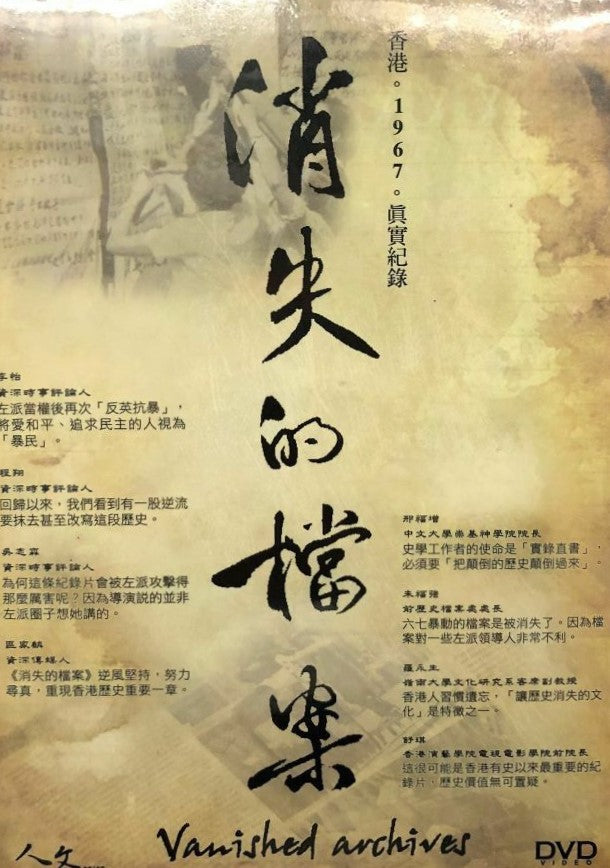 消失的檔案
香港。1967。眞實紀錄
李怡
資深時事評論人
左派當權後再次「反英抗暴」，
將愛和平、追求民主的人視為
「暴民」。
程翔
資深時事評論人
回歸以來，我們看到有一股逆流
要抹去甚至改寫這段歷史。
吳志森
資深時事評論人
為何這條紀錄片會被左派攻擊得
那麼厲害呢？因為導演説的並非
左派圈子想她講的。
區家麟
資深傳媒人
《消失的檔案》逆風堅持，努力
尋真，重現香港歷史重要一章。
邢福增
中文大學崇基神學院院長
史學工作者的使命是「實錄直書」，
必須要「把顛倒的歷史顛倒過來」。
朱福強
前歷史檔案處處長
六七暴動的檔案是被消失了。因為檔
案對一些左派領導人非常不利。
羅永生
嶺南大學文化研究系客席副教授
香港人習慣遺忘，「讓歷史消失的文
化」是特徵之一。
舒琪
香港演藝學院電視電影學院前院長
這很可能是香港有史以來最重要的紀
錄片，歷史價值無可置疑。
Vanished archives
人文
DVD
VIDEO